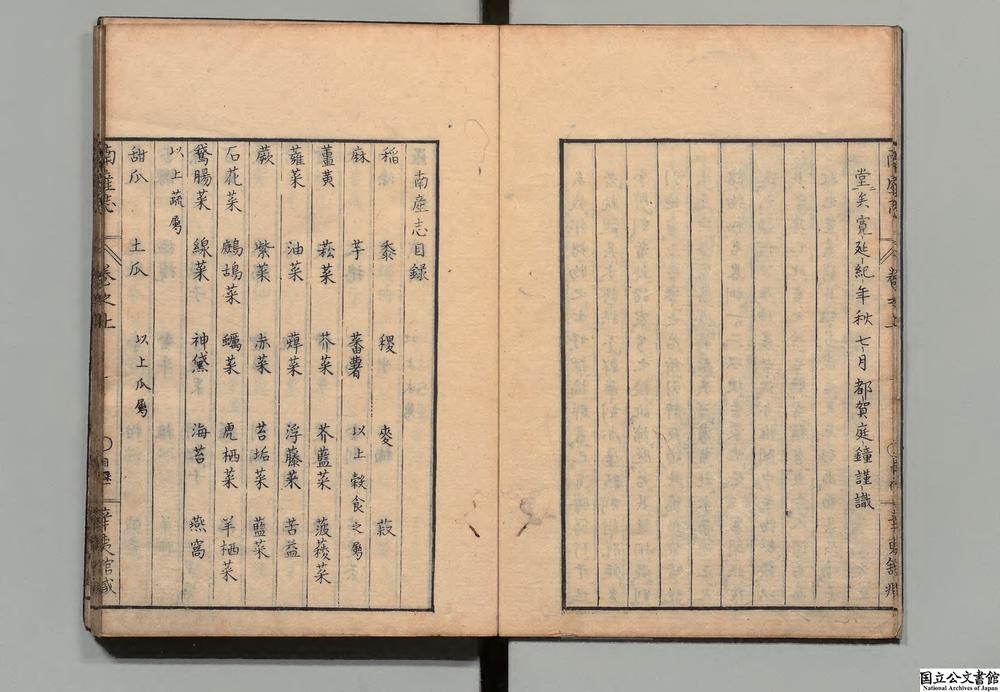 堂矣寛延紀年秋七月都賀庭鐘謹識
南産志目録
稲 黍 稷 麥 菽
麻 芋 蕃薯 以上穀食之屬
薑黄 菘菜 芥菜 芥藍菜 菠薐菜
蕹菜 油菜 蓴菜 浮藤菜 苦益
蕨 紫菜 赤菜 苔垢菜 藍菜
石花菜 鷓鴣菜 蠣菜 鹿栖菜 羊栖菜
鵞腸菜 線菜 神黛 海苔 燕窩
以上蔬屬
甜瓜 土瓜 以上瓜屬
南産志 卷之上
国立公文書館
National Archives of Japan